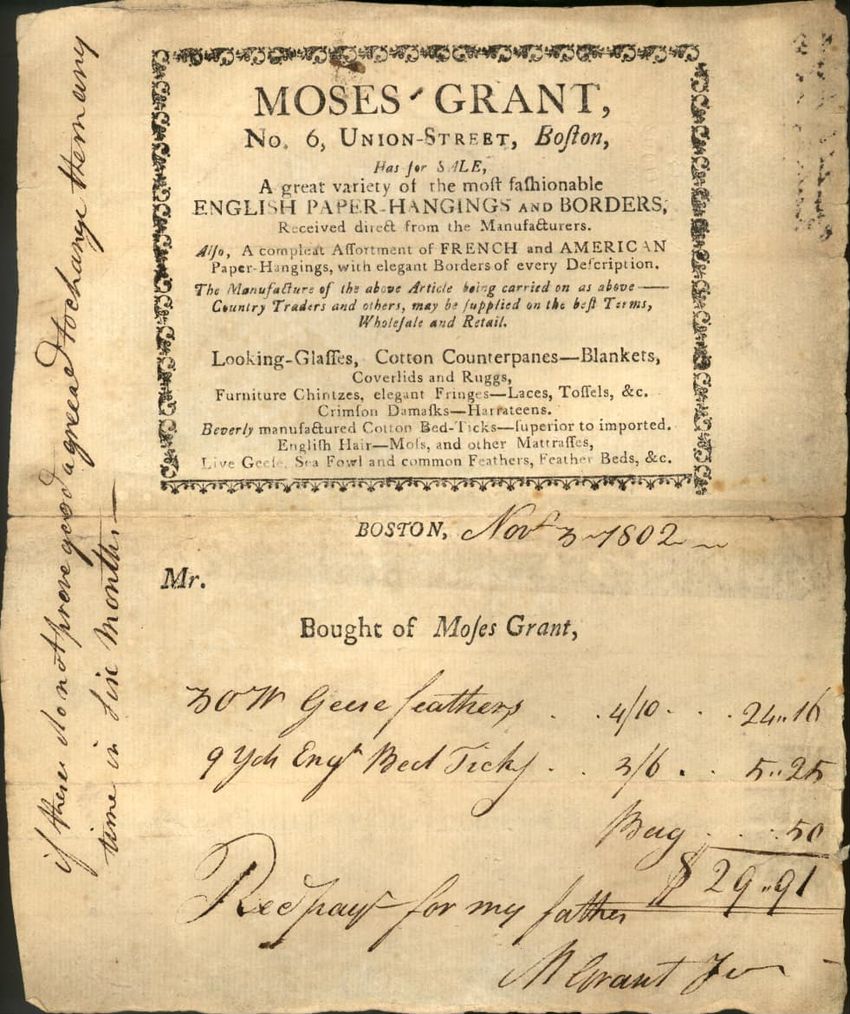 MOSES GRANT,
No. 6, UNION-STREET, Boſton,
Has for SALE,
A great variety of the moſt faſhionable
ENGLISH PAPER-HANGINGS AND BORDERS,
Received direct from the Manufacturers.
Alſo, A compleat Aſſortment of FRENCH and AMERICAN
Paper-Hangings, with elegant Borders of every Deſcription.
The Manufacture of the above Article being carried on as above——
Country Traders and others, may be ſupplied on the beſt Terms,
Wholeſale and Retail.
Looking-Glaſſes, Cotton Counterpanes—Blankets,
Coverlids and Ruggs,
Furniture Chintzes, elegant Fringes—Laces, Toſſels, &c.
Crimſon Damaſks—Harrateens.
Beverly manufactured Cotton Bed-Ticks—ſuperior to imported.
Engliſh Hair—Moſs, and other Mattraſſes,
Live Geeſe, Sea Fowl and common Feathers, Feather Beds, &c.
BOSTON, Novr 3 1802
Mr.
Bought of Moſes Grant,
30 W Geese feathers . . 4/10 . . . 24..16
9 Yds Engh Bed Tick . . 3/6 . . 5..25
Bag . . . . 50
$ 29..91
Recd payt for my father
M Grant Jr
if these do not prove good agreead to change them any
time in Six Months—